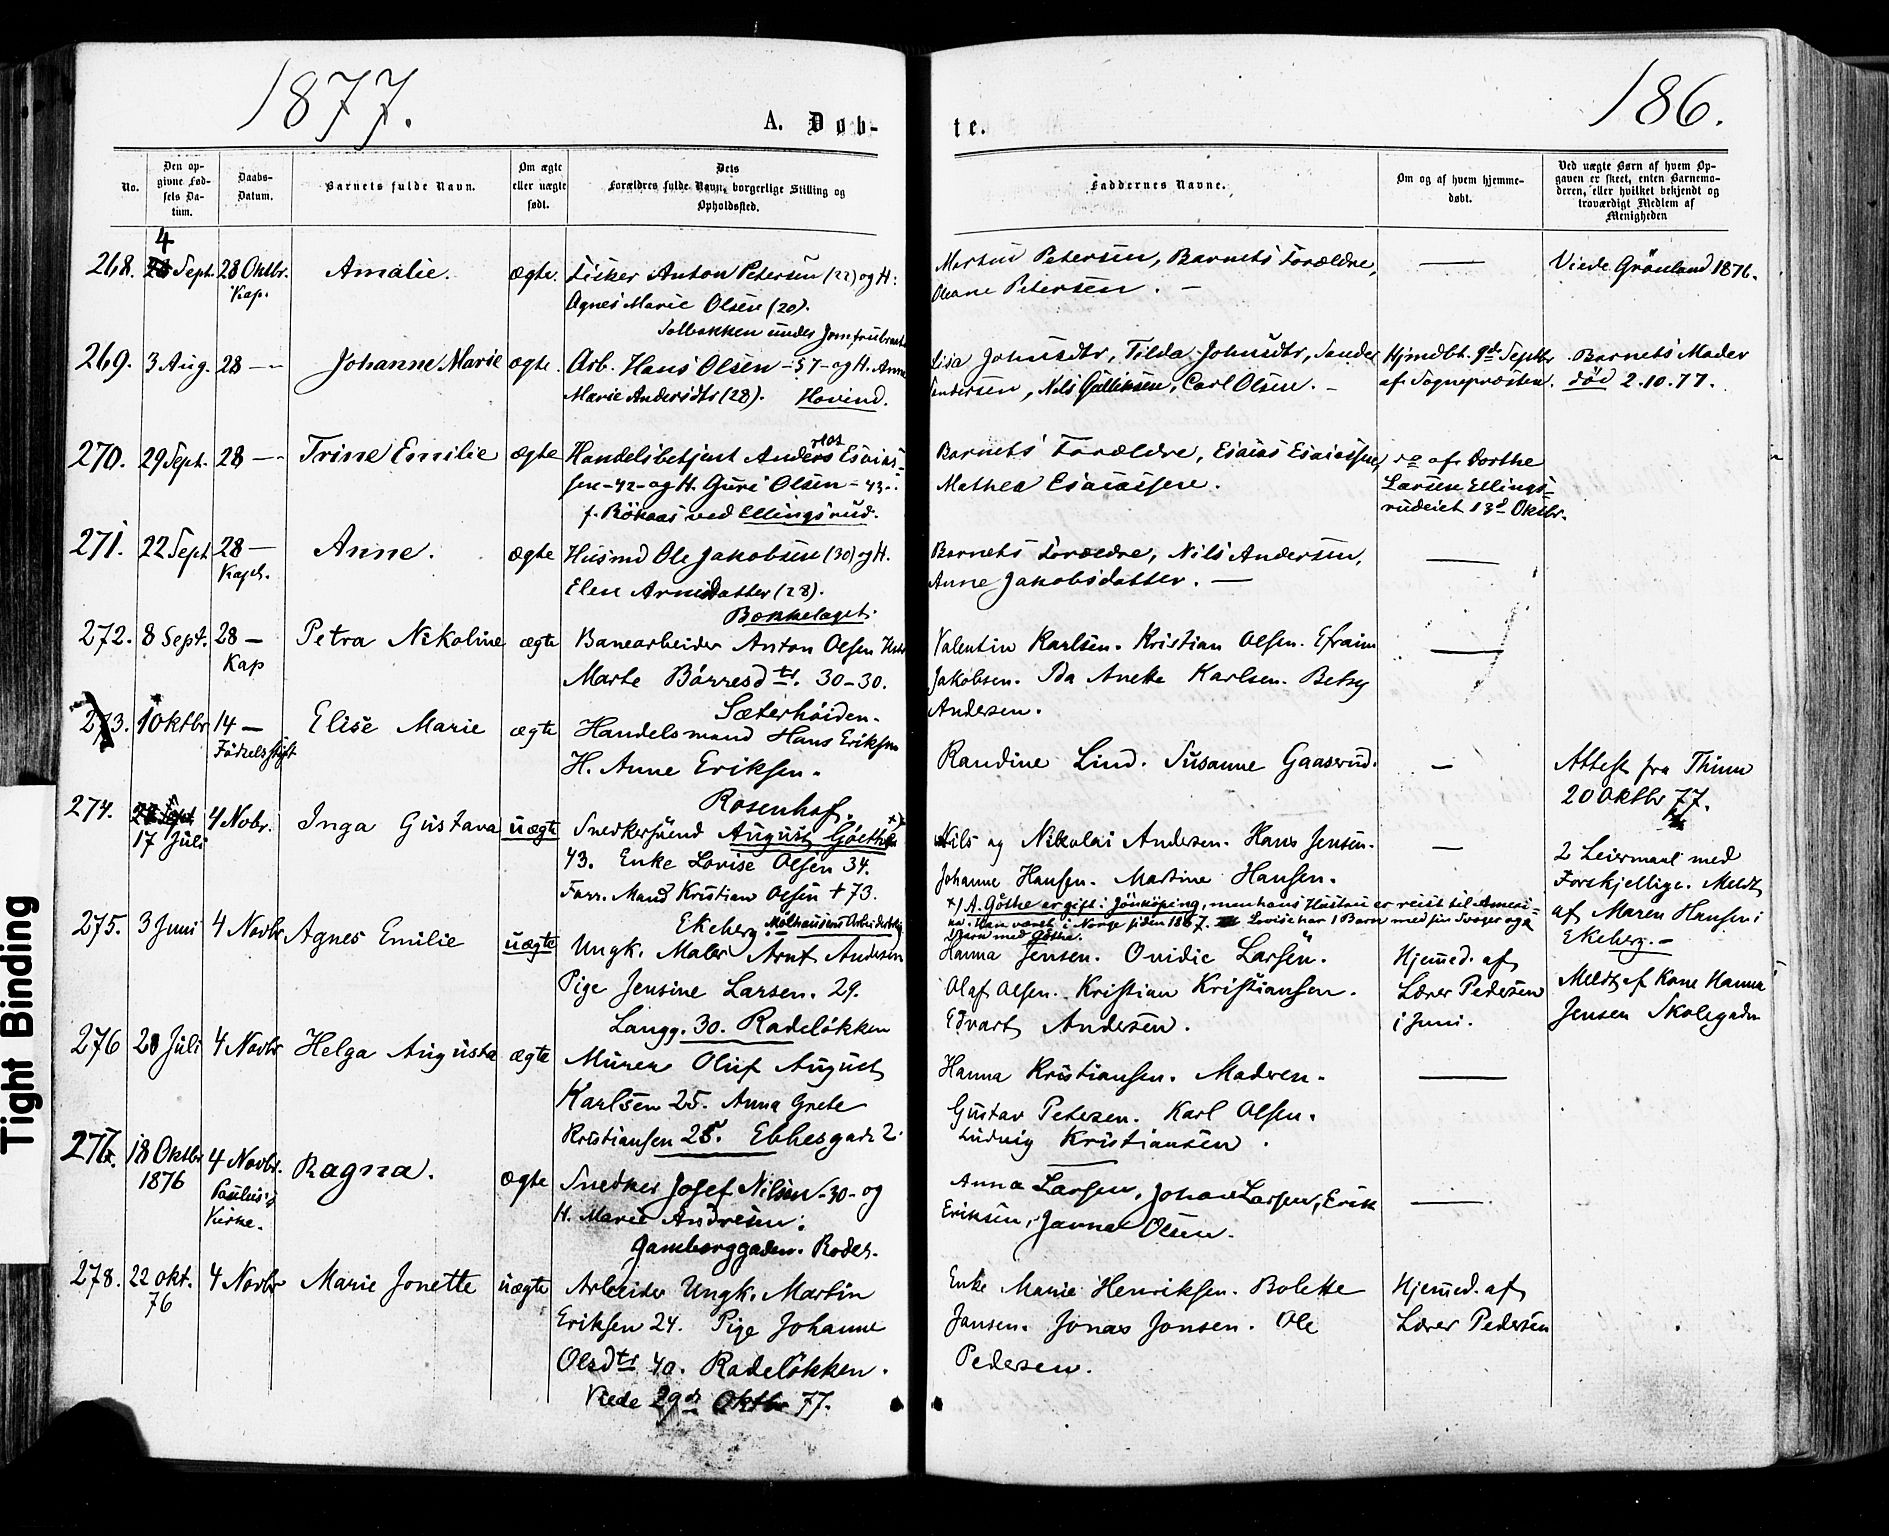 1877.
186.
A. Døb-
te.
No.
Den op-
givne Fød-
sels Da-
tum.
Daabs-
Datum.
Barnets fulde Navn.
Om ægte
eller uægte
født.
Dets
Forældres fulde Navn, borgerlige Stilling og
Opholdssted.
Faddernes Navne.
Om og af hvem hjemme-
døbt.
Ved uægte Børn af hvem Op-
gaven er skeet, enten Barnemo-
deren, eller hvilket bekjendt og
troværdigt Medlem af
Menigheden
268. 4 Sept. 28 Oktbr. Kap. Amalie. ægte.
Anton Petersen (22) og H.
Agnes Marie Olsen (20).
Solbakken under
Petersen, Barnets Forældre,
Oleane Petersen. —
Viede Grönland 1876.
269. 3 Aug. 28 — Johanne Marie ægte.
Arb. Hans Olsen - 37 - og H. Anne
Marie Andersdtr (28). Hovind.
Lisa Johnsdtr, Tilda Johnsdtr,
Andersen, Nils Gulliksen, Carl Olsen. -
Hjmdbt. 9de Septbr
af Sogneprösten.
Barnets Moder
död 2.10.77.
270. 29 Sept. 28 — Trine Emilie ægte
Handelsbetjent Anders Esaias-
sen - 42 - og H. Guri Olsen - 43 -
f. ved Ellingsrud.
Barnets Forældre, Esaias Esaiassen,
Mathea Esaiassen.
af Dorthe
Larsen Ellings-
rudeiet 13d Oktbr.
271. 22 Sept. 28 — Kapel. Anne. ægte
Husmd Ole Jakobsen (30) og H.
Elen Arnesdatter (28).
Bækkelaget.
Barnets Forældre, Nils Andersen,
Anne Jakobsdatter. —
272. 8 Sept. 28 — Kap Petra Nikoline ægte
Banearbeider Anton Olsen
Marte Börresdtr. 30-30.
Sæterhöiden.
Valentin Karlsen. Kristian Olsen. Efraim
Jakobsen. Ida Anette Karlsen. Betsy
Andersen.
273. 1 Oktbr 14 — Födselsstift Elise Marie ægte
Handelsmand Hans Eriksen
H. Anne Eriksen.
Rosenhof.
Randine Lind. Susanne Gaasrud.
Attest fra Thinn
20 Oktbr 77.
274. 17 Juli 4 Nobr. Inga Gustava uægte
Snedkersvend August Göethe x)
43. Enke Lovise Olsen 34.
Forr. Mand Kristian Olsen + 73.
Ekeberg.
Nils og Nikolai Andersen. Hans Jensen.
Johanne Hansen. Martine Hansen.
x) A. Göthe er gift i Jönköping, men hans Hustru er reist til Ameri-
ka. Han været i Norge siden 1867. Lovise har 1 Barn med sin Svoger og 2
Börn med Göthe.
2 Leiermaal med
Forskjellige. Meldt
af Maren Hansen i
Ekeberg. —
275. 3 Juni 4 Novbr Agnes Emilie uægte
Ungk. Maler Arnt Andersen
Pige Jensine Larsen. 29.
Langg. 30. Rodelökken
Hanna Jensen. Ovidie Larsen.
Olaf Olsen. Kristian Kristiansen.
Edvart Andersen.
Hjemmed. af
Lærer Pedersen
i Juni.
Meldt af Kone Hanna
Jensen Skolegaden
276 Juli 4 Novbr Helga Augusta ægte
Murer Oluf August
Karlsen 25. Anna Grete
Kristiansen 25. Ebbesgade 2.
Hanna Kristiansen. Modren.
Gustav Petersen. Karl Olsen.
Ludvig Kristiansen.
277. 18 Oktbr 1876 4 Novbr. Paulus Kirke. Ragna. ægte
Snedker Josef Nilsen - 30 - og
H. Marie Andresen.
Gamborggaden. Rodel.
Anna Larsen, Johan Larsen, Erik
Eriksen, Olsen.
278. 22 Okt. 76 4 Novbr Marie Jonette uægte
Arbeider Ungk. Martin
Eriksen 24. Pige Johanne
Olsdtr 40. Rodelökken.
Viede 29de Oktbr 77.
Enke Marie Henriksen. Bolette
Jansen. Jonas Jonsen. Ole
Pedersen.
Hjemmed. af
Lærer Pedersen
Tight Binding